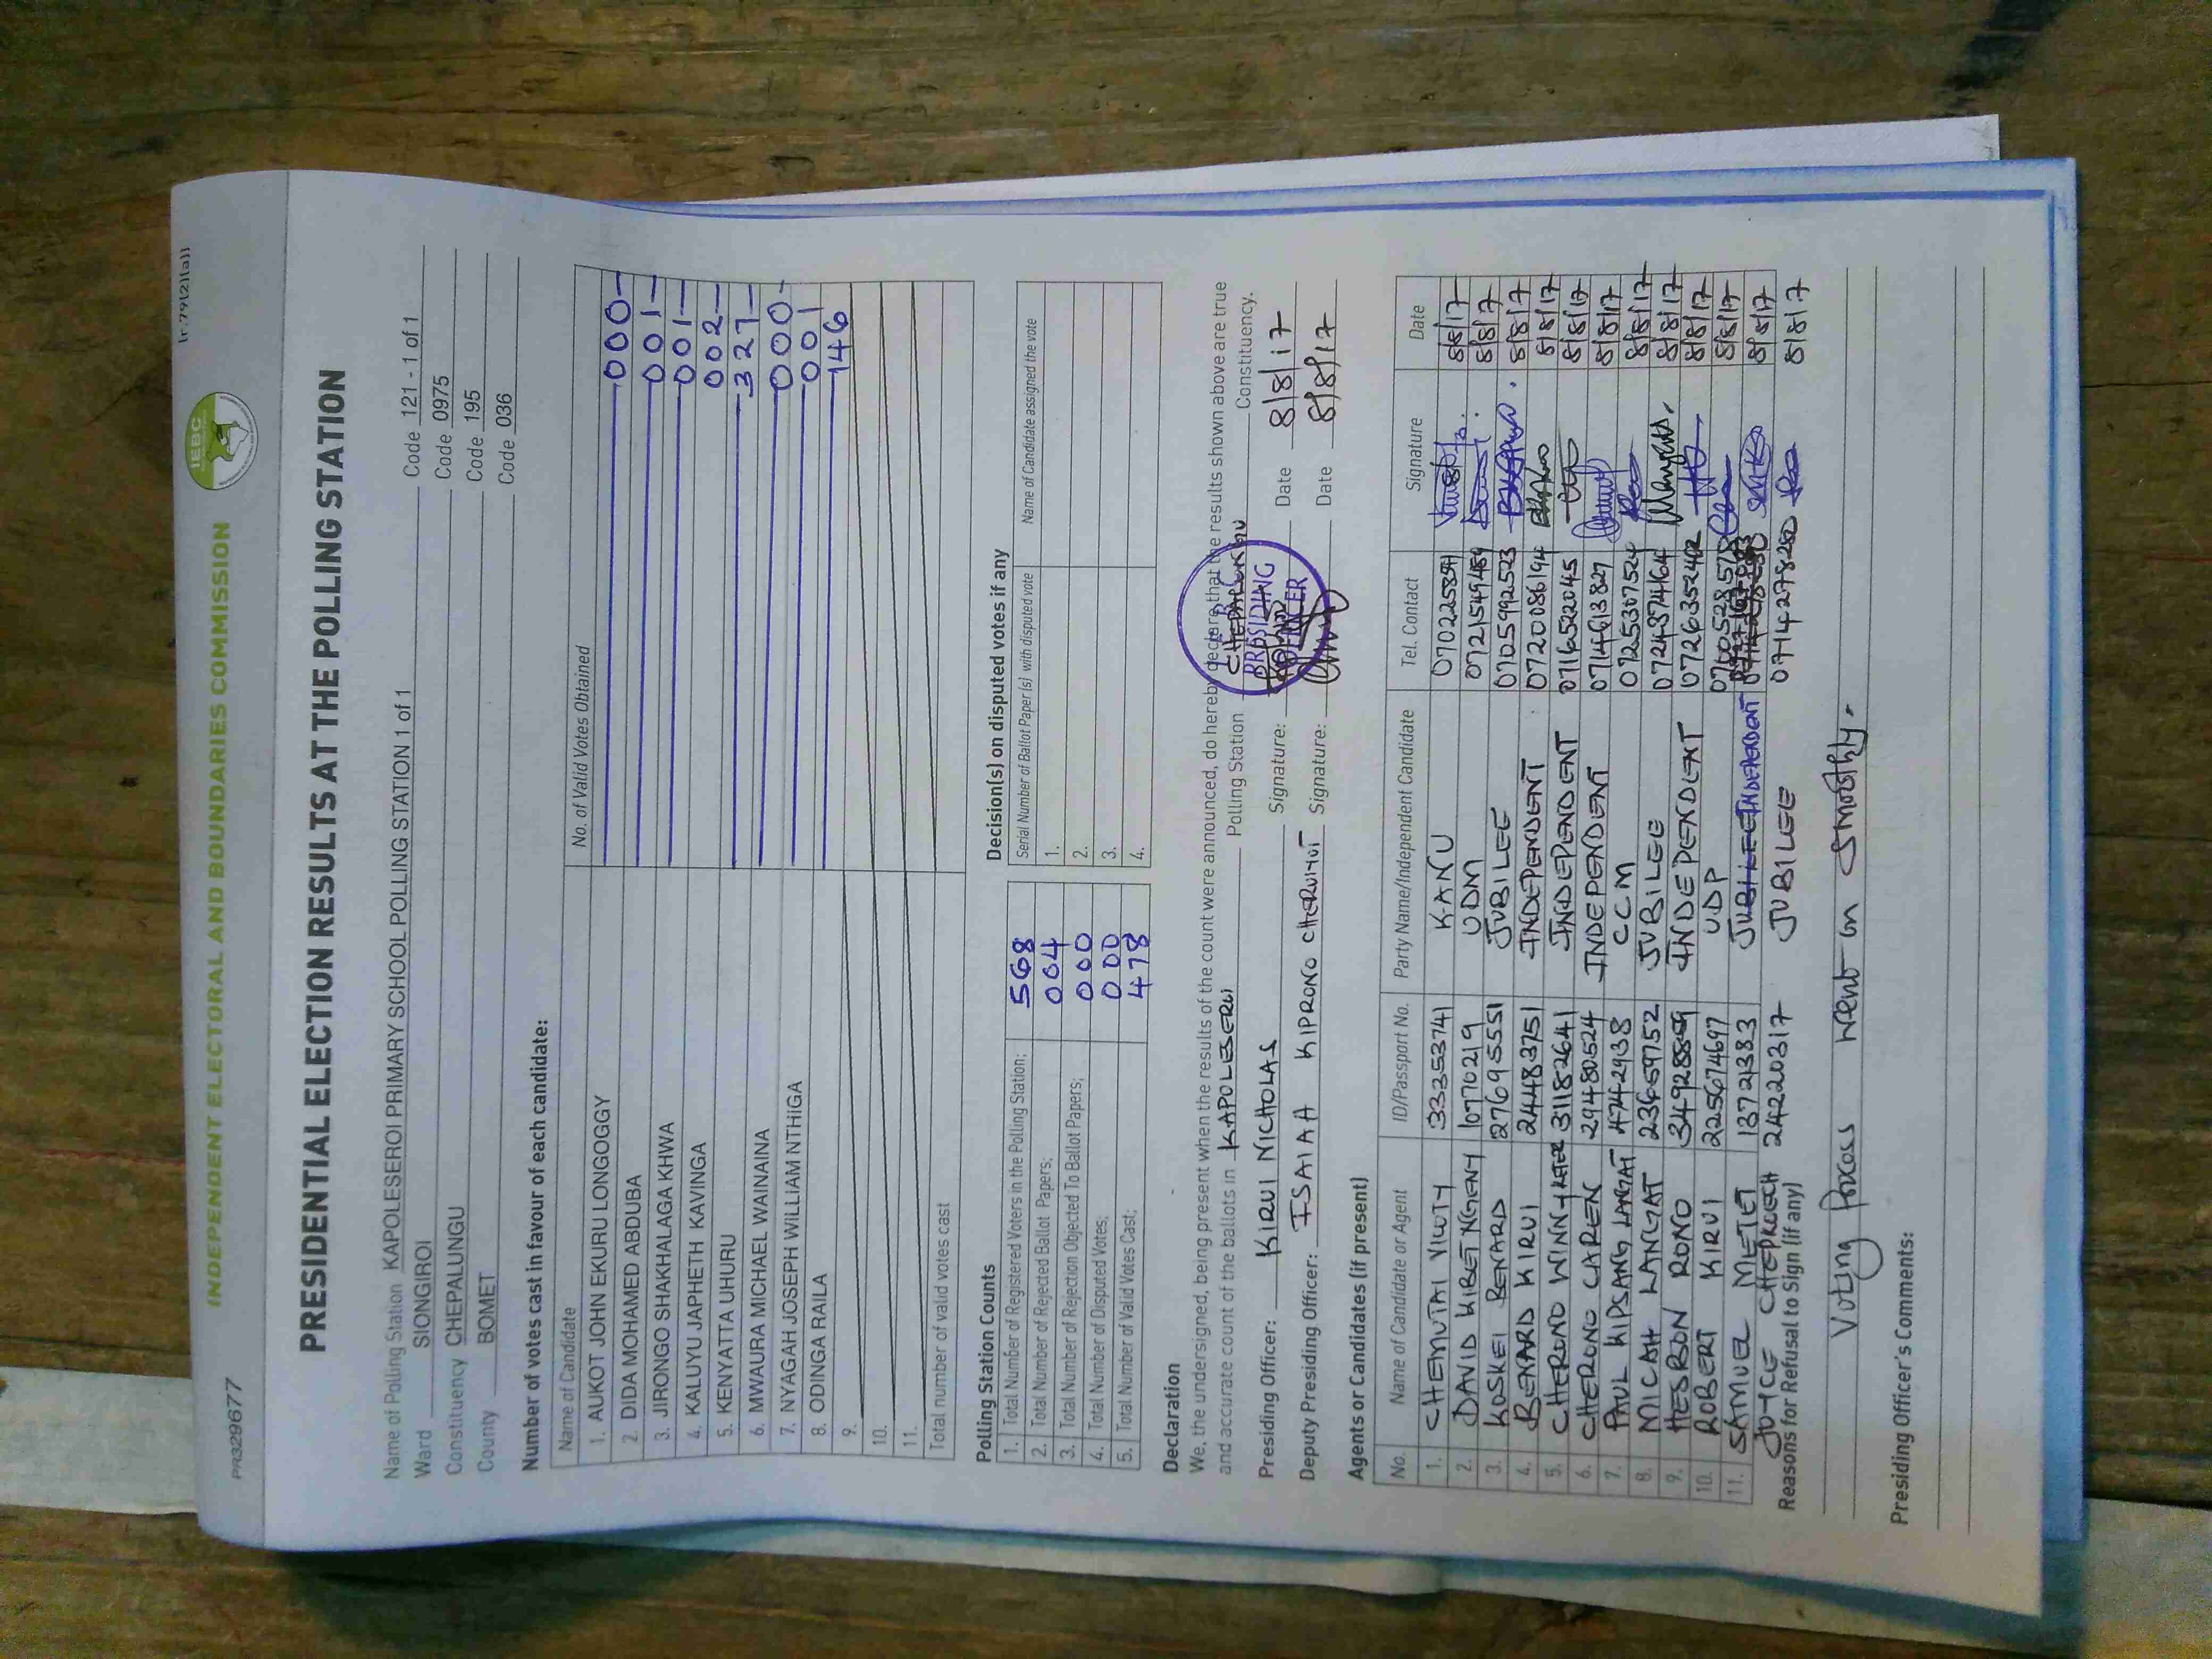 (r.79(2)(a))
IEBC
INDEPENDENT ELECTORAL AND BOUNDARIES COMMISSION
PRESIDENTIAL ELECTION RESULTS AT THE POLLING STATION
Name of Polling Station KAPOLESEROI PRIMARY SCHOOL POLLING STATION 1 of 1 Code 121 - 1 of 1
Ward SIONGIROI Code 0975
Constituency CHEPALUNGU Code 195
County BOMET Code 036
Number of votes cast in favour of each candidate:
Name of Candidate No. of Valid Votes Obtained
1. AUKOT JOHN EKURU LONGOGGY 000
2. DIDA MOHAMED ABDUBA 001
3. JIRONGO SHAKHALAGA KHWA 001
4. KALUYU JAPHETH KAVINGA 002
5. KENYATTA UHURU 327
6. MWAURA MICHAEL WAINAINA 000
7. NYAGAH JOSEPH WILLIAM NTHIGA 001
8. ODINGA RAILA 146
9.
10.
11.
Total number of valid votes cast
Polling Station Counts
1. Total Number of Registered Voters in the Polling Station; 568
2. Total Number of Rejected Ballot Papers; 004
3. Total Number of Rejection Objected To Ballot Papers; 000
4. Total Number of Disputed Votes; 000
5. Total Number of Valid Votes Cast; 478
Decision(s) on disputed votes if any
Serial Number of Ballot Paper(s) with disputed vote Name of Candidate assigned the vote
1.
2.
3.
4.
Declaration
We, the undersigned, being present when the results of the count were announced, do hereby declare that the results shown above are true
and accurate count of the ballots in KAPOLESEROI Polling Station CHEPALUNGU Constituency.
PRESIDING
OFFICER
Presiding Officer: KIRUI NICHOLAS Signature: Date 8/8/17
Deputy Presiding Officer: ISAIAH KIPRONO CHERUIYOT Signature: Date 8/8/17
Agents or Candidates (if present)
No. Name of Candidate or Agent ID/Passport No. Party Name/Independent Candidate Tel. Contact Signature Date
1. CHEMUTAI VILUTY 33353741 KANU 8/8/17
2. DAVID KIBET NGENY 10770219 UDM 8/8/17
3. KOSKEI BENARD 276955551 JUBILEE 0705992523 8/8/17
4. BENARD KIRUI 24483751 INDEPENDENT 0720086194 8/8/17
5. CHERONO WINNY 31182641 INDEPENDENT 0716522045 8/8/17
6. CHERONO CAREN 29480524 INDEPENDENT 0714613829 8/8/17
7. PAUL KIPSANG LANGAT 4742938 CCM 0725307524 8/8/17
8. MICAH LANGAT 23659752 JUBILEE 0724374164 8/8/17
9. HESBON RONO INDEPENDENT 8/8/17
10. ROBERT KIRUI 225674697 UDP 8/8/17
11. SAMUEL METET 13721383 JUBILEE INDEPENDENT 8/8/17
JOYCE CHEPKOECH 24220317 JUBILEE 0714278250 8/8/17
Reasons for Refusal to Sign (if any)
Voting Process went on smoothly.
Presiding Officer's Comments: